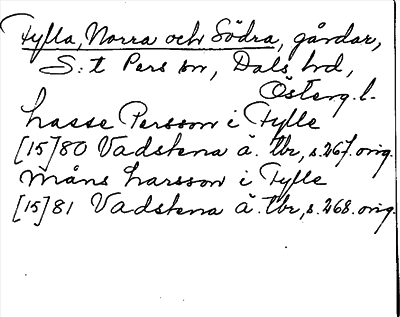 Fylla, Norra och Södra, gårdar,
S:t Pers sn, Dals hd,
Österg. l.
Lasse Persson i Fylle
[15]80 Vadstena ä. tbr, s. 267. orig.
Måns Larsson i Fylle
[15]81 Vadstena ä. tbr, s. 268. orig.